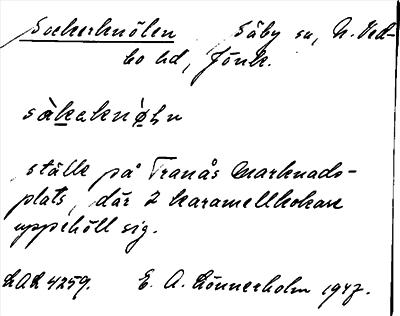 Sockerknölen Säby sn, N. Ved-
bo hd, Jönk.
ställe på Tranås marknads-
plats, där 2 karamellkokare
uppehöll sig.
LAL 4259. E. A. Lönnerholm 1947.